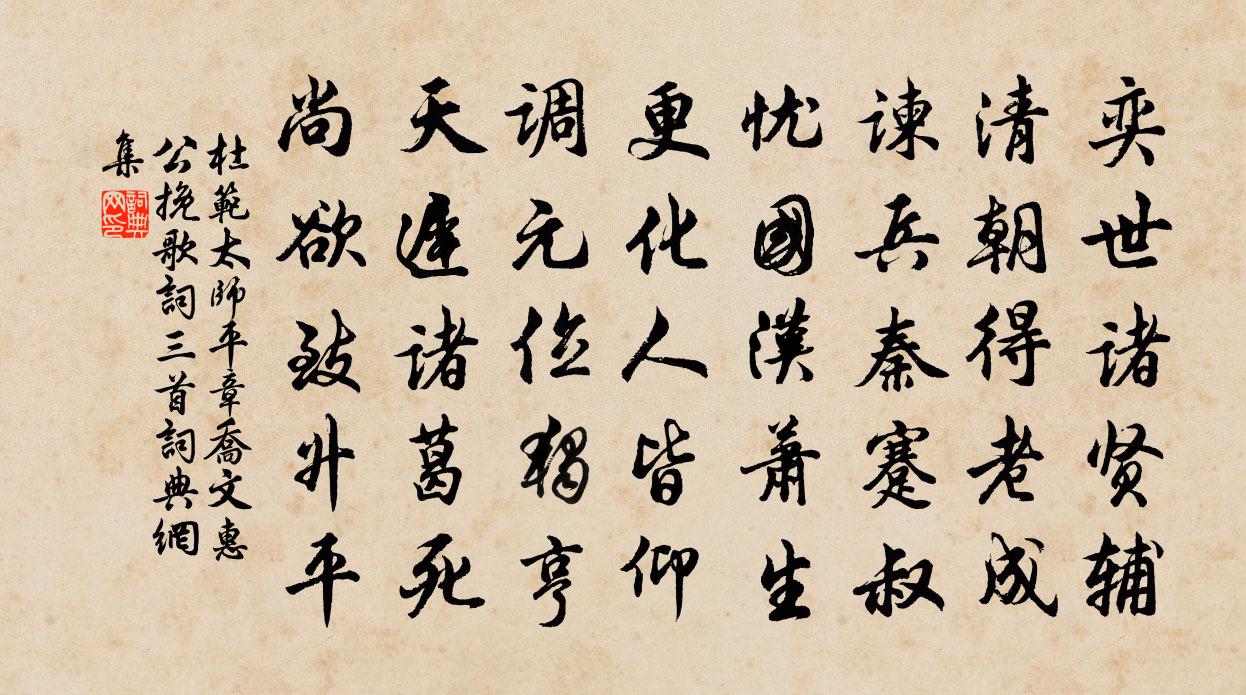 奕世诸贤辅
清朝得老成
谏兵秦蹇叔
忧國漢萧生
更化人皆仰
调元位獨亨
天遲诸葛死
尚欲致升平
杜範太師平章喬文惠
公挽歌詞三首詞典網
集
詞典
网印